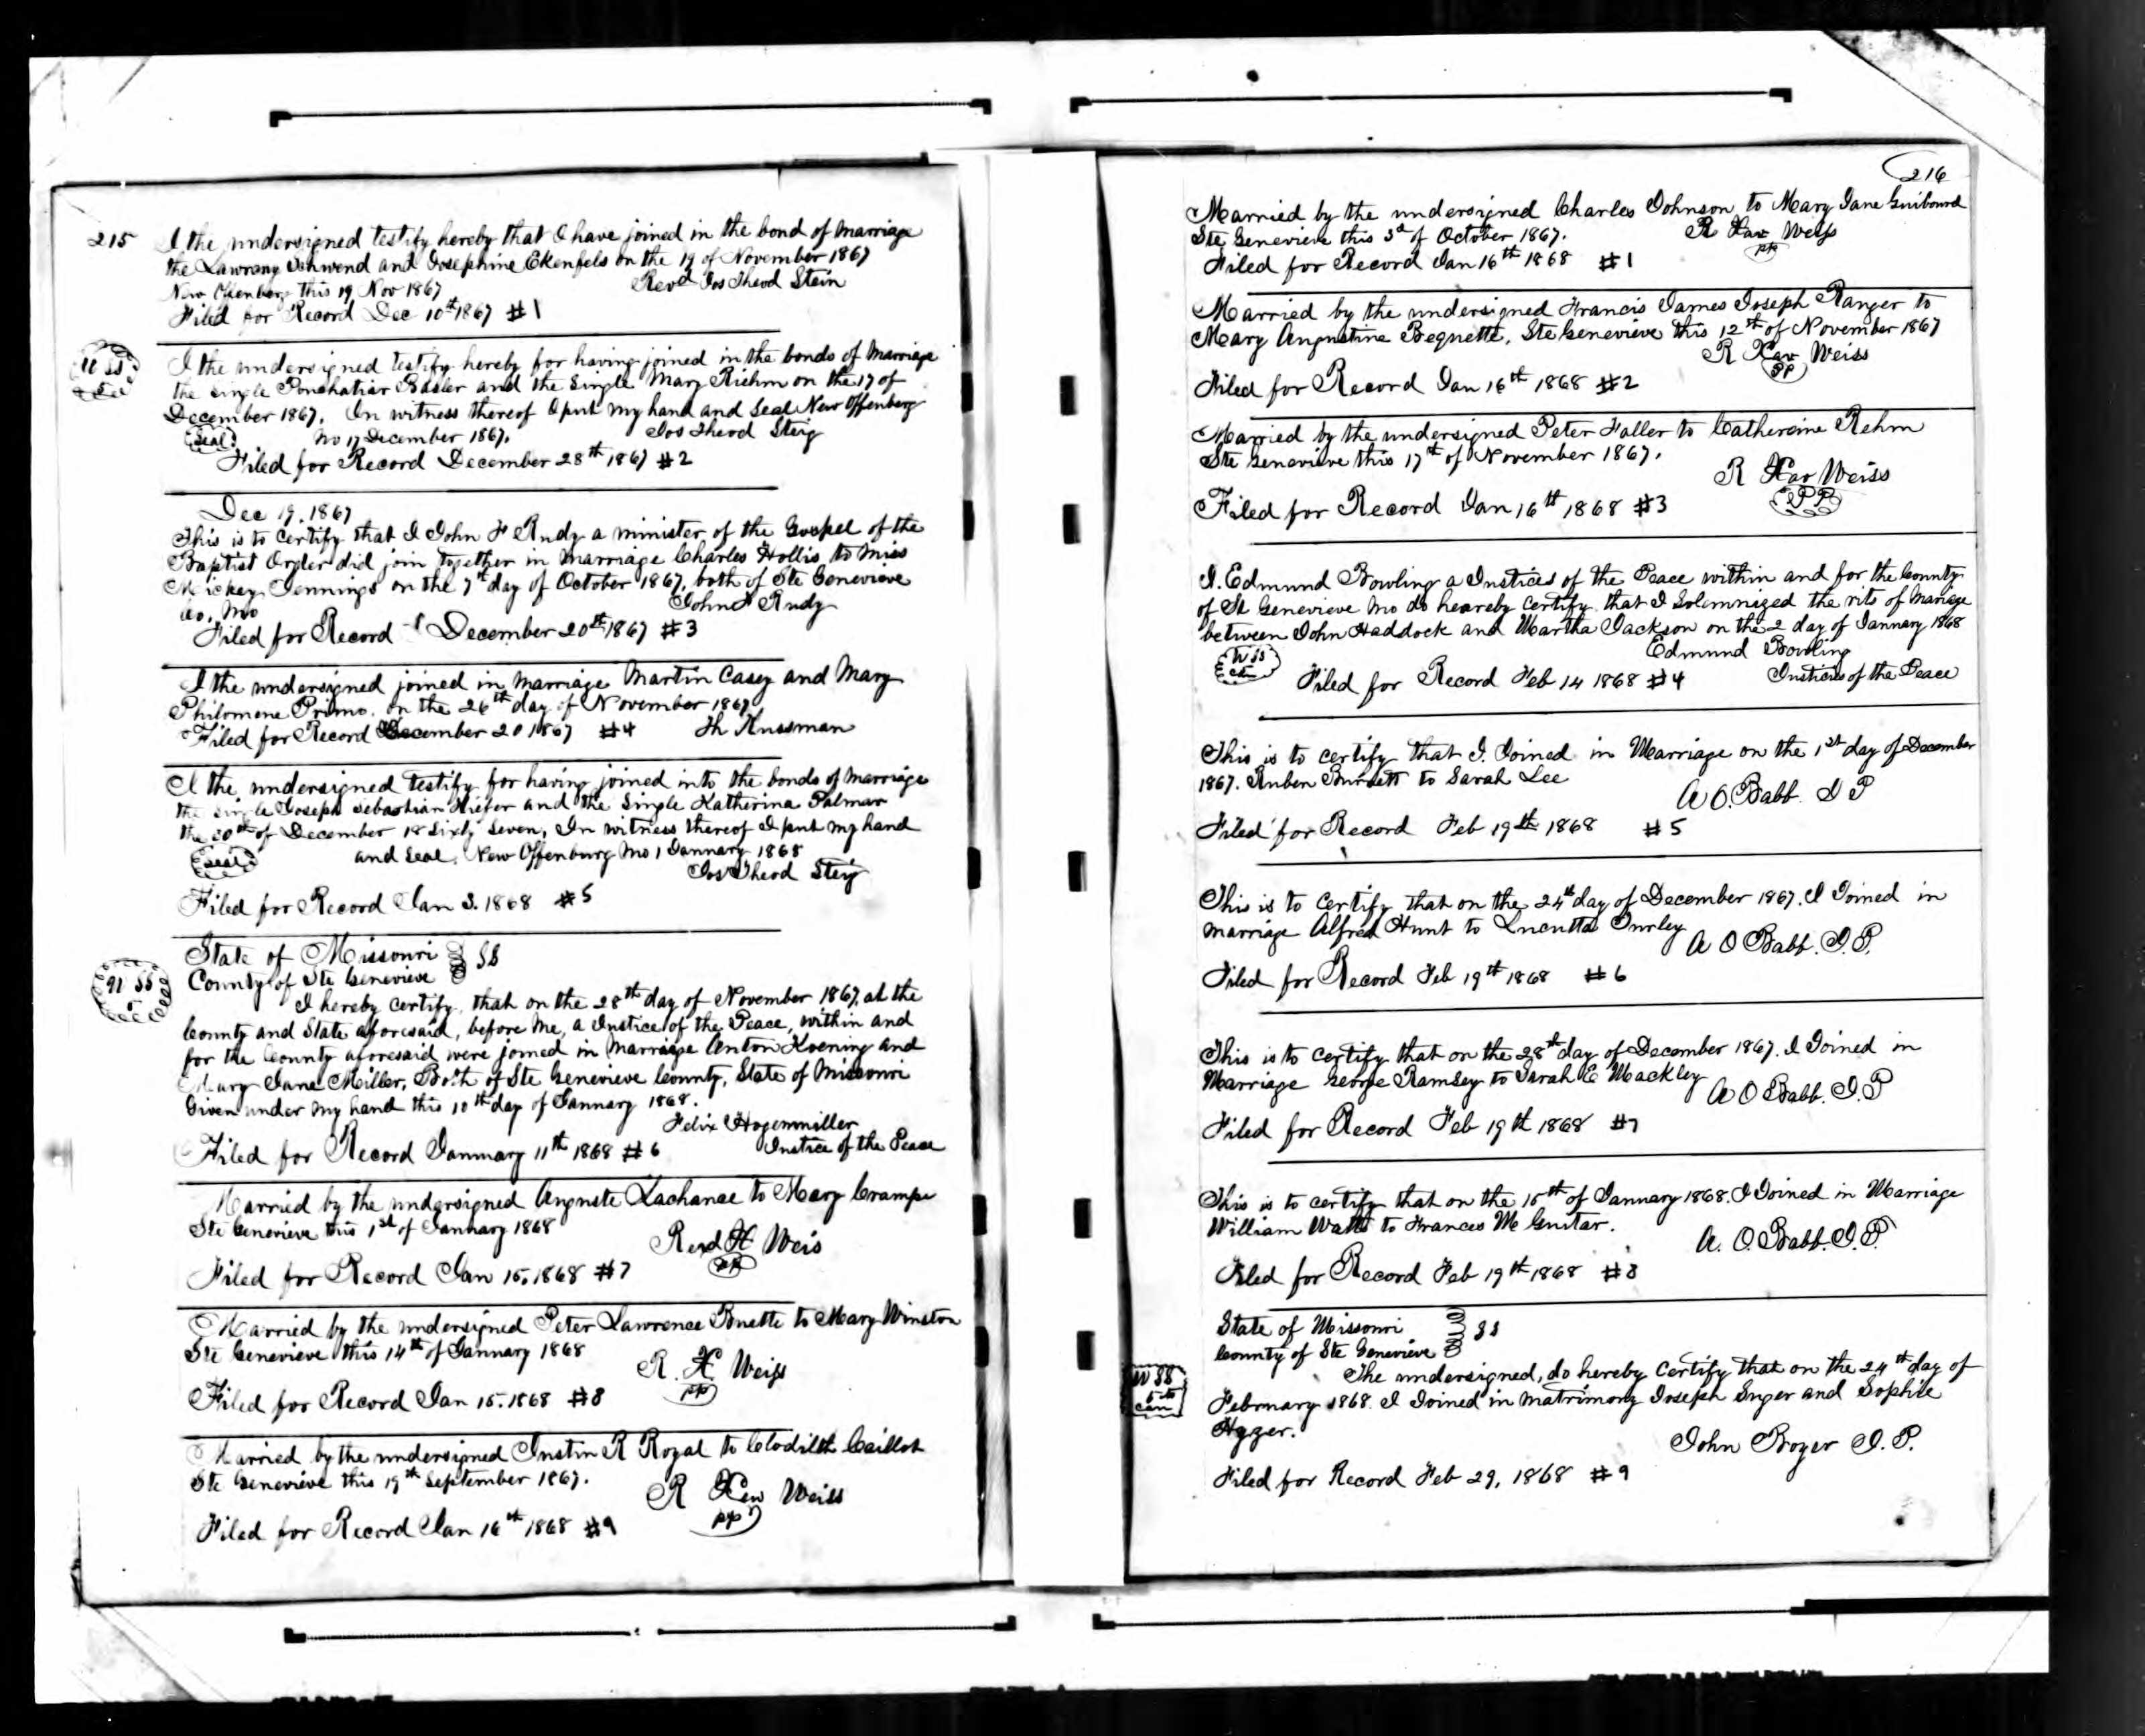 215
I the undersigned testify hereby that I have joined in the bond of Marriage
the Lawrany Schwend and Josephine Ekenfels on the 19 of November 1867
New Offenberg this 19 Nov 1867 Revd Jos Theod Stein
Filed for Record Dec 10th 1867 #1
I the undersigned testify hereby for having joined in the bonds of Marriage
the single Basler and the Single Mary Riehm on the 17 of
December 1867. In witness thereof I put my hand and Seal New Offenberg
Seal Mo 17 December 1867. Jos Theod Steig
Filed for Record December 28th 1867 #2
Dec 19. 1867
This is to Certify that I John F Rudy a minister of the Gospel of the
Baptist Order did join together in Marriage Charles Hollis to Miss
Mickey Jennings on the 7th day of October 1867, both of Ste Genevieve
Co. Mo John F Rudy
Filed for Record December 20th 1867 #3
I the undersigned joined in Marriage Martin Casey and Mary
Philomene Primo. on the 26th day of November 1867
Filed for Record December 20 1867 #4 Th Kussman
I the undersigned testify for having joined into the bonds of Marriage
the single Joseph Sebastian Kiefer and the Single Katherina Palmar
the 20th of December 18 Sixty Seven, In witness thereof I put my hand
Seal and Seal. New Offenburg Mo 1 January 1868
Jos Theod Steig
Filed for Record Jan 3. 1868 #5
State of Missouri SS
County of Ste Genevieve
I hereby certify, that on the 28th day of November 1867, at the
County and State aforesaid, before Me, a Justice of the Peace, within and
for the County aforesaid were joined in Marriage Anton Koening and
Mary Jane Miller, Both of Ste Genevieve County, State of Missouri
Given under My hand this 10th day of January 1868.
Felix Hogenmiller
Filed for Record January 11th 1868 #6 Justice of the Peace
Married by the undersigned Auguste Lachance to Mary Crampe
Ste Genevieve this 1st of January 1868
Revd H Weis
PP
Filed for Record Jan 15. 1868 #7
Married by the undersigned Peter Lawrence Buette to Mary Winston
Ste Genevieve this 14th of January 1868
R. X Weiss
PP
Filed for Record Jan 15. 1868 #8
Married by the undersigned Justin R Royal to Clodilth Caillot
Ste Genevieve this 19th September 1867.
R Xav Weiss
PP
Filed for Record Jan 16th 1868 #9
216
Married by the undersigned Charles Johnson to Mary Jane Guibourd
Ste Genevieve this 3d of October 1867. R Xav Weiss
PP
Filed for Record Jan 16th 1868 #1
Married by the undersigned Francis James Joseph Ranger to
Mary Augustine Bequette, Ste Genevieve this 12th of November 1867
R Xav Weiss
PP
Filed for Record Jan 16th 1868 #2
Married by the undersigned Peter Faller to Catherine Rehm
Ste Genevieve this 17th of November 1867.
R Xav Weiss
PP
Filed for Record Jan 16th 1868 #3
I. Edmund Bowling a Justices of the Peace within and for the County
of St Genevieve Mo do heareby Certify that I Solemnized the rits of Mariage
between John Haddock and Martha Jackson on the 2 day of January 1868
Edmund Bowling
Filed for Record Feb 14 1868 #4 Justices of the Peace
This is to certify that I. Joined in Marriage on the 1st day of December
1867. Ruben Burnett to Sarah Lee
A O. Babb J P
Filed for Record Feb 19th 1868 #5
This is to Certify that on the 24th day of December 1867. I Joined in
Marriage Alfred Hunt to Lucutta Ourley
A O Babb. J. P.
Filed for Record Feb 19th 1868 #6
This is to Certify that on the 28th day of December 1867. I Joined in
Marriage George Ramsey to Sarah E Mackley
A O Babb. J. P
Filed for Record Feb 19th 1868 #7
This is to Certify that on the 15th of January 1868. I Joined in Marriage
William Watts to Frances McGuitar.
A. O. Babb. J. P.
Filed for Record Feb 19th 1868 #8
State of Missouri SS
County of Ste Genevieve
The undersigned, do hereby Certify that on the 24th day of
February 1868. I Joined in Matrimony Joseph Suger and Sophie
Hgger.
John Boyer J. P.
Filed for Record Feb 29, 1868 #9